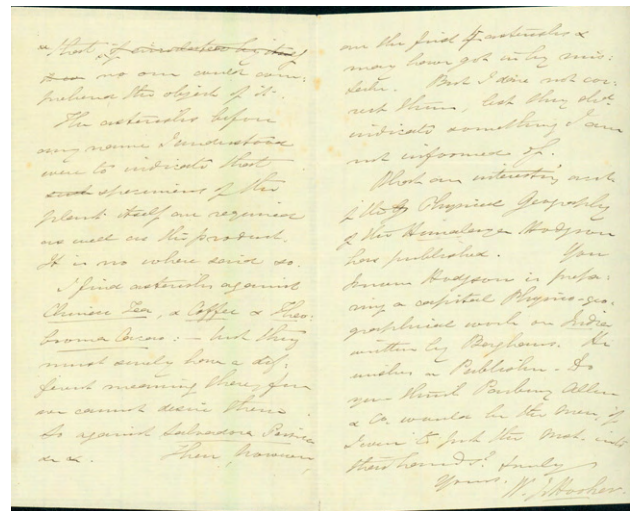 "that if circulated in this
no one could com:
prehend the object of it.
The asterisks before
any name I understood
were to indicate that
specimens of the
plant itself are required
as well as the product.
It is no where said so.
I find asterisks against
Chinese Tea, & Coffee & Theo:
broma Cacao: – but they
must surely have a dif:
ferent meaning there, for
we cannot desire them.
So against Salvadora Persica
&c &c. Then, however,
are the find asterisks &
may have got in by mis:
take. But I dare not cor:
rect them, lest they shd.
indicate something I am
not informed of.
What an interesting acct.
of the Physical Geography
of the Himalaya Hodgson
has published. You
know Hodgson is prepa:
ring a capital Physico-geo:
graphical work on India
written by Berghaus. He
wishes a Publisher. Do
you think Parbury Allen
& Co. would be the men, if
I were to put the Mat. into
their hands? truly
Yours. W. J. Hooker.